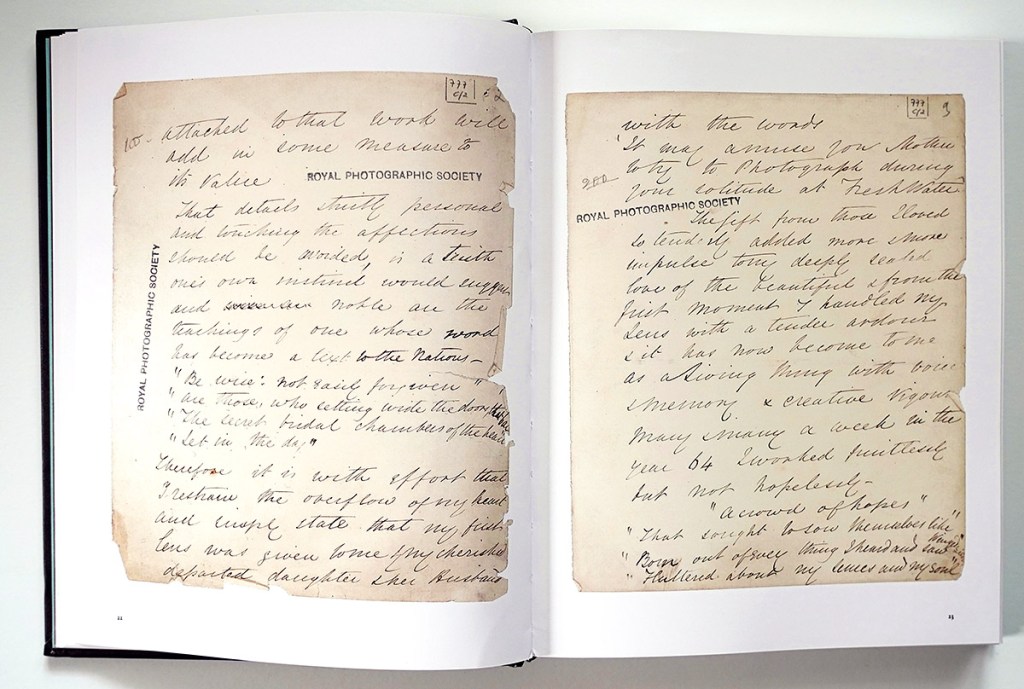 777
c/2
100 - attached to that work will
add in some measure to
its value
ROYAL PHOTOGRAPHIC SOCIETY
That details strictly personal
and touching the affections
should be avoided, is a truth
one's own instinct would suggest
and noble are the
teachings of one whose word
has become a text to the Nations—
"Be wise: not easily forgiven"
"are those, who setting wide the doors that bar
"The secret bridal chambers of the heart
"Let in the day"
ROYAL PHOTOGRAPHIC SOCIETY
Therefore it is with effort that
I restrain the overflow of my heart
and simply state that my first
lens was given to me by my cherished
departed daughter & her Husband
22
777
c/2
3
with the words
"It may amuse you Mother
to try to Photograph during
your solitude at Freshwater"
200
ROYAL PHOTOGRAPHIC SOCIETY
The gift from those I loved
so tenderly added more & more
impulse to my deeply seated
love of the beautiful & from the
first moment I handled my
lens with a tender ardour
& it has now become to me
as a living thing with voice
& memory & creative vigour
Many & many a week in the
year 64 I worked fruitlessly
but not hopelessly—
"a crowd of hopes"
"That sought to sow themselves like winged
"Born out of every thing I heard and saw"
"Fluttered about my senses and my soul"
23